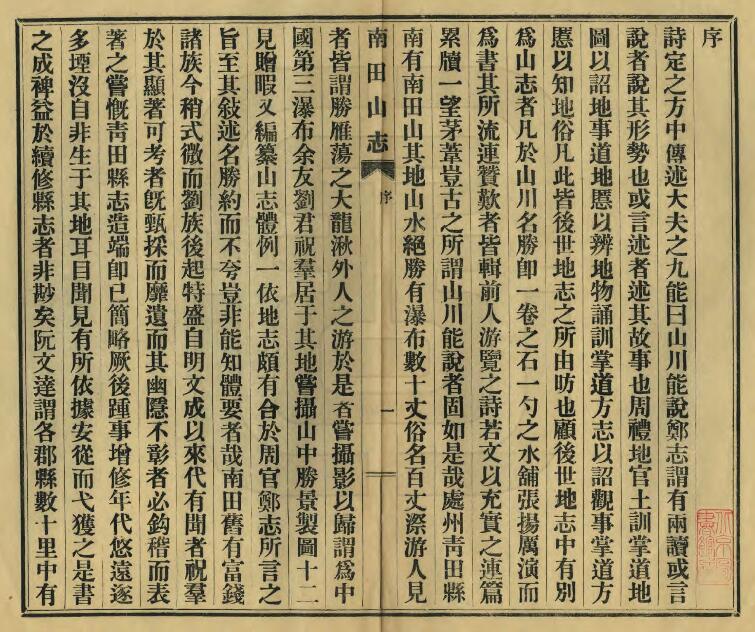 序
詩定之方中傳述大夫之九能曰山川能說鄭志謂有兩讀或言
說者說其形勢也或言述者述其故事也周禮地官土訓掌道地
圖以詔地事道地慝以辨地物誦訓掌道方志以詔觀事掌道方
慝以知地俗凡此皆後世地志之所由昉也顧後世地志中有別
爲山志者凡於山川名勝卽一卷之石一勺之水舖張揚厲演而
爲書其所流連贊歎者皆輯前人游覽之詩若文以充實之連篇
累牘一望茅葦豈古之所謂山川能說者固如是哉處州靑田縣
南有南田山其地山水絕勝有瀑布數十丈俗名百丈漈游人見
南田山志
序
一
者皆謂勝雁蕩之大龍湫外人之游於是者嘗攝影以歸謂爲中
國第三瀑布余友劉君祝羣居于其地嘗攝山中勝景製圖十二
見贈暇又編纂山志體例一依地志頗有合於周官鄭志所言之
旨至其敍述名勝約而不夸豈非能知體要者哉南田舊有富錢
諸族今稍式微而劉族後起特盛自明文成以來代有聞者祝羣
於其顯著可考者旣甄採而靡遺而其幽隱不彰者必鈎稽而表
著之嘗慨靑田縣志造端卽已簡略厥後踵事增修年代悠遠遂
多堙沒自非生于其地耳目聞見有所依據安從而弋獲之是書
之成裨益於續修縣志者非尠矣阮文達謂各郡縣數十里中有